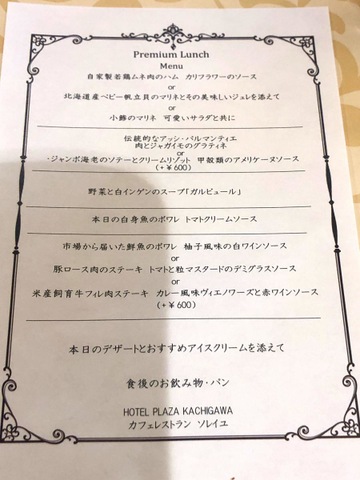 Premium Lunch
Menu
自家製若鶏ムネ肉のハム カリフラワーのソース
or
北海道産ベビー帆立貝のマリネとその美味しいジュレを添えて
or
小鯵のマリネ 可愛いサラダと共に
伝統的なアッシ・パルマンティエ
肉とジャガイモのグラティネ
or
・ジャンボ海老のソテーとクリームリゾット 甲殻類のアメリケーヌソース
(+¥600)
野菜と白インゲンのスープ「ガルビュール」
本日の白身魚のポワレ トマトクリームソース
市場から届いた鮮魚のポワレ 柚子風味の白ワインソース
or
豚ロース肉のステーキ トマトと粒マスタードのデミグラスソース
or
米産飼育牛フィレ肉ステーキ カレー風味ヴィエノワーズと赤ワインソース
(+¥600)
本日のデザートとおすすめアイスクリームを添えて
食後のお飲み物・パン
HOTEL PLAZA KACHIGAWA
カフェレストラン ソレイユ